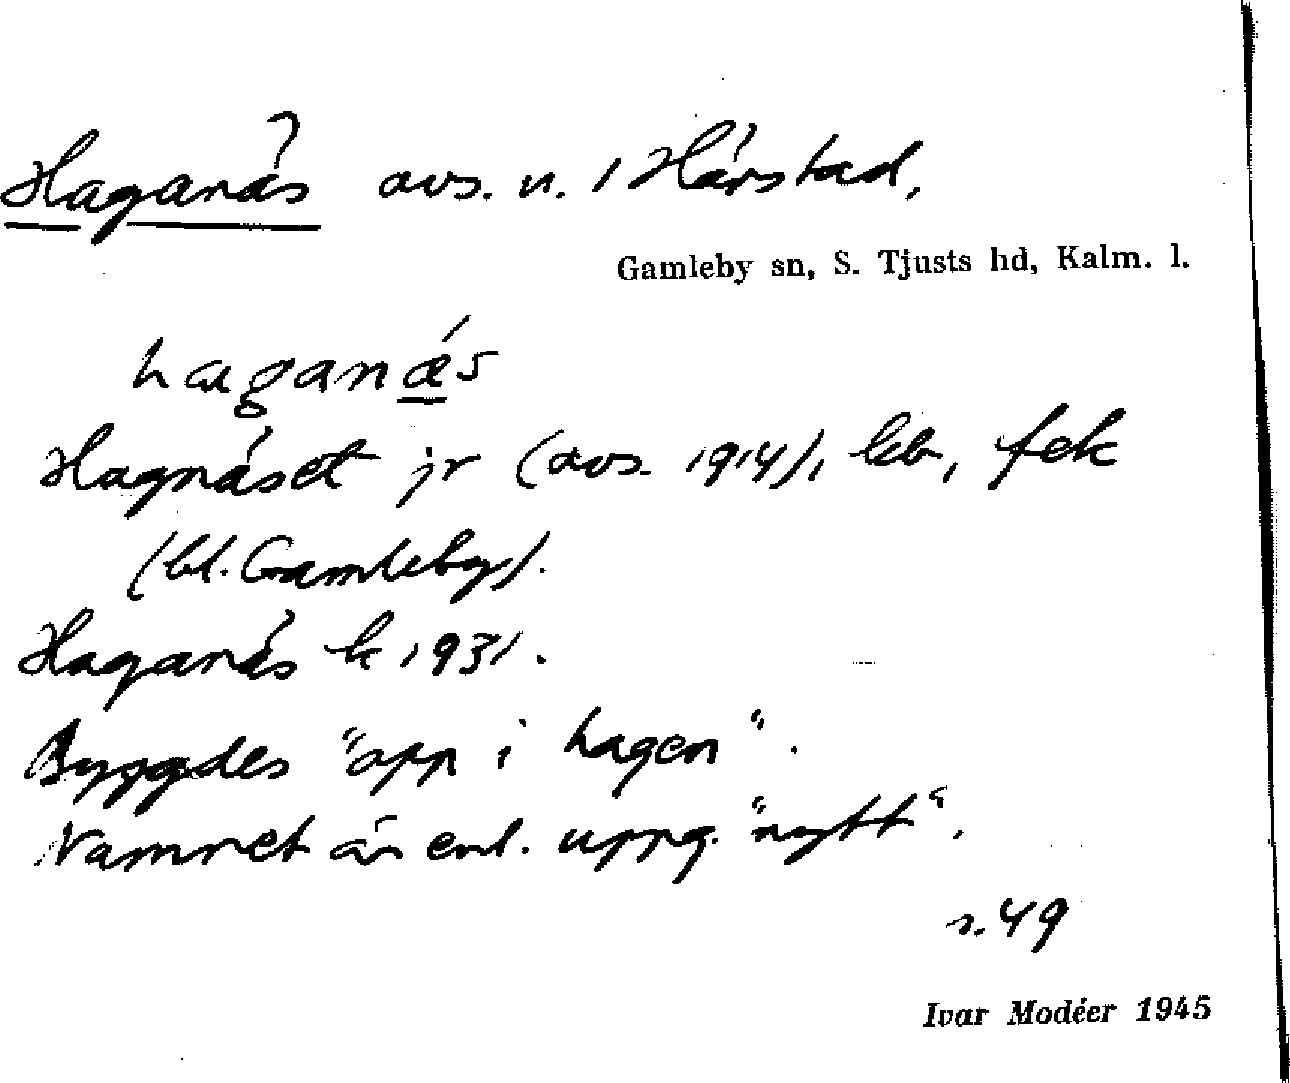 Haganäs avs. u. i Härstad,
Gamleby sn, S. Tjusts hd, Kalm. l.
haganǽs
Hagnäset jr (avs. 1914), kb, fek
(bl. Gamleby).
Haganäs k 1931.
Byggdes "opp i hagen".
Namnet är enl. uppg. "nytt".
s. 49
Ivar Modéer 1945